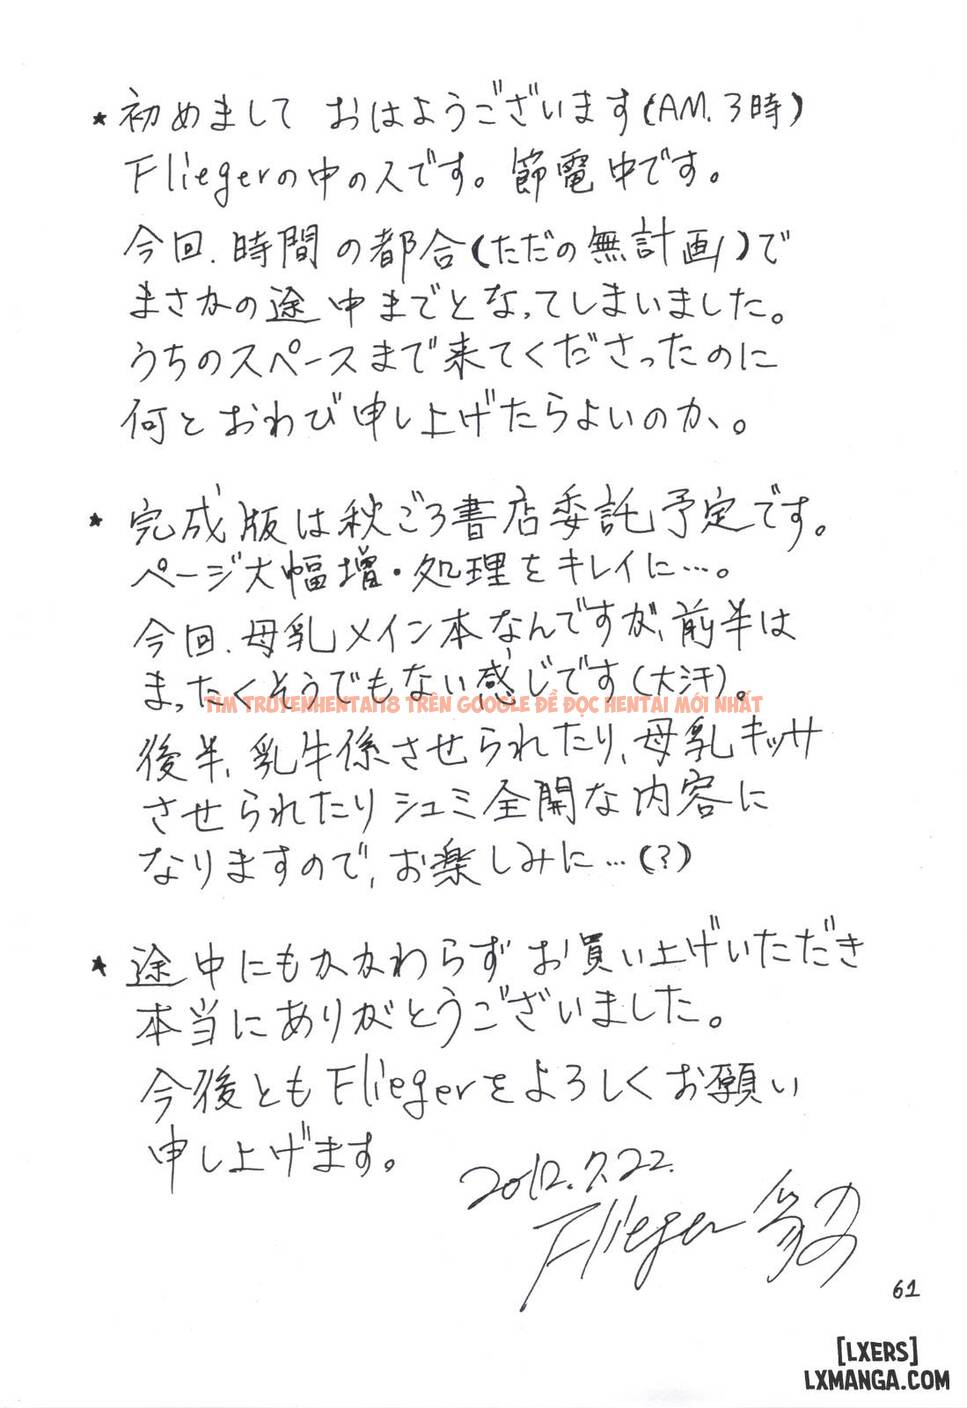 ★ 初めまして おはようございます(AM.3時)
Fliegerの中の人です。節電中です。
今回、時間の都合(ただの無計画)で
まさかの途中までとなってしまいました。
うちのスペースまで来てくださったのに
何とおわび申し上げたらよいのか、。
★ 完成版は秋ごろ書店委託予定です。
ページ大幅増・処理をキレイに…。
今回、母乳メイン本なんですが、前半は
まったくそうでもない感じです(大汗)。
TÌM TRUYENHENTAI18 TRÊN GOOGLE ĐỂ ĐỌC HENTAI MỚI NHẤT
後半、乳牛係させられたり、母乳キッサ
させられたりシュミ全開な内容に
なりますので、お楽しみに…(?)
★ 途中にもかかわらずお買い上げいただき
本当にありがとうございました。
今後ともFliegerをよろしくお願い
申し上げます。
2012.7.22.
Flieger
61
[LXERS]
LXMANGA.COM